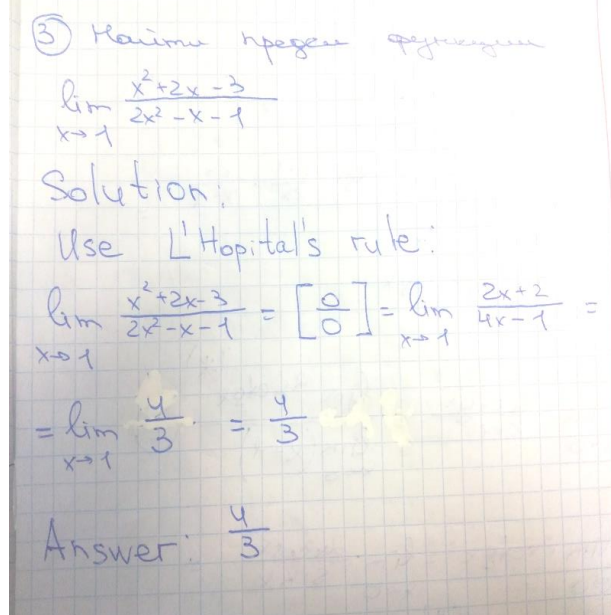 3 Найти предел функции
lim x→1 x²+2x-3 / 2x²-x-1
Solution:
Use L'Hopital's rule:
lim x→1 x²+2x-3 / 2x²-x-1 = [0/0] = lim x→1 2x+2 / 4x-1 =
= lim x→1 4/3 = 4/3
Answer: 4/3